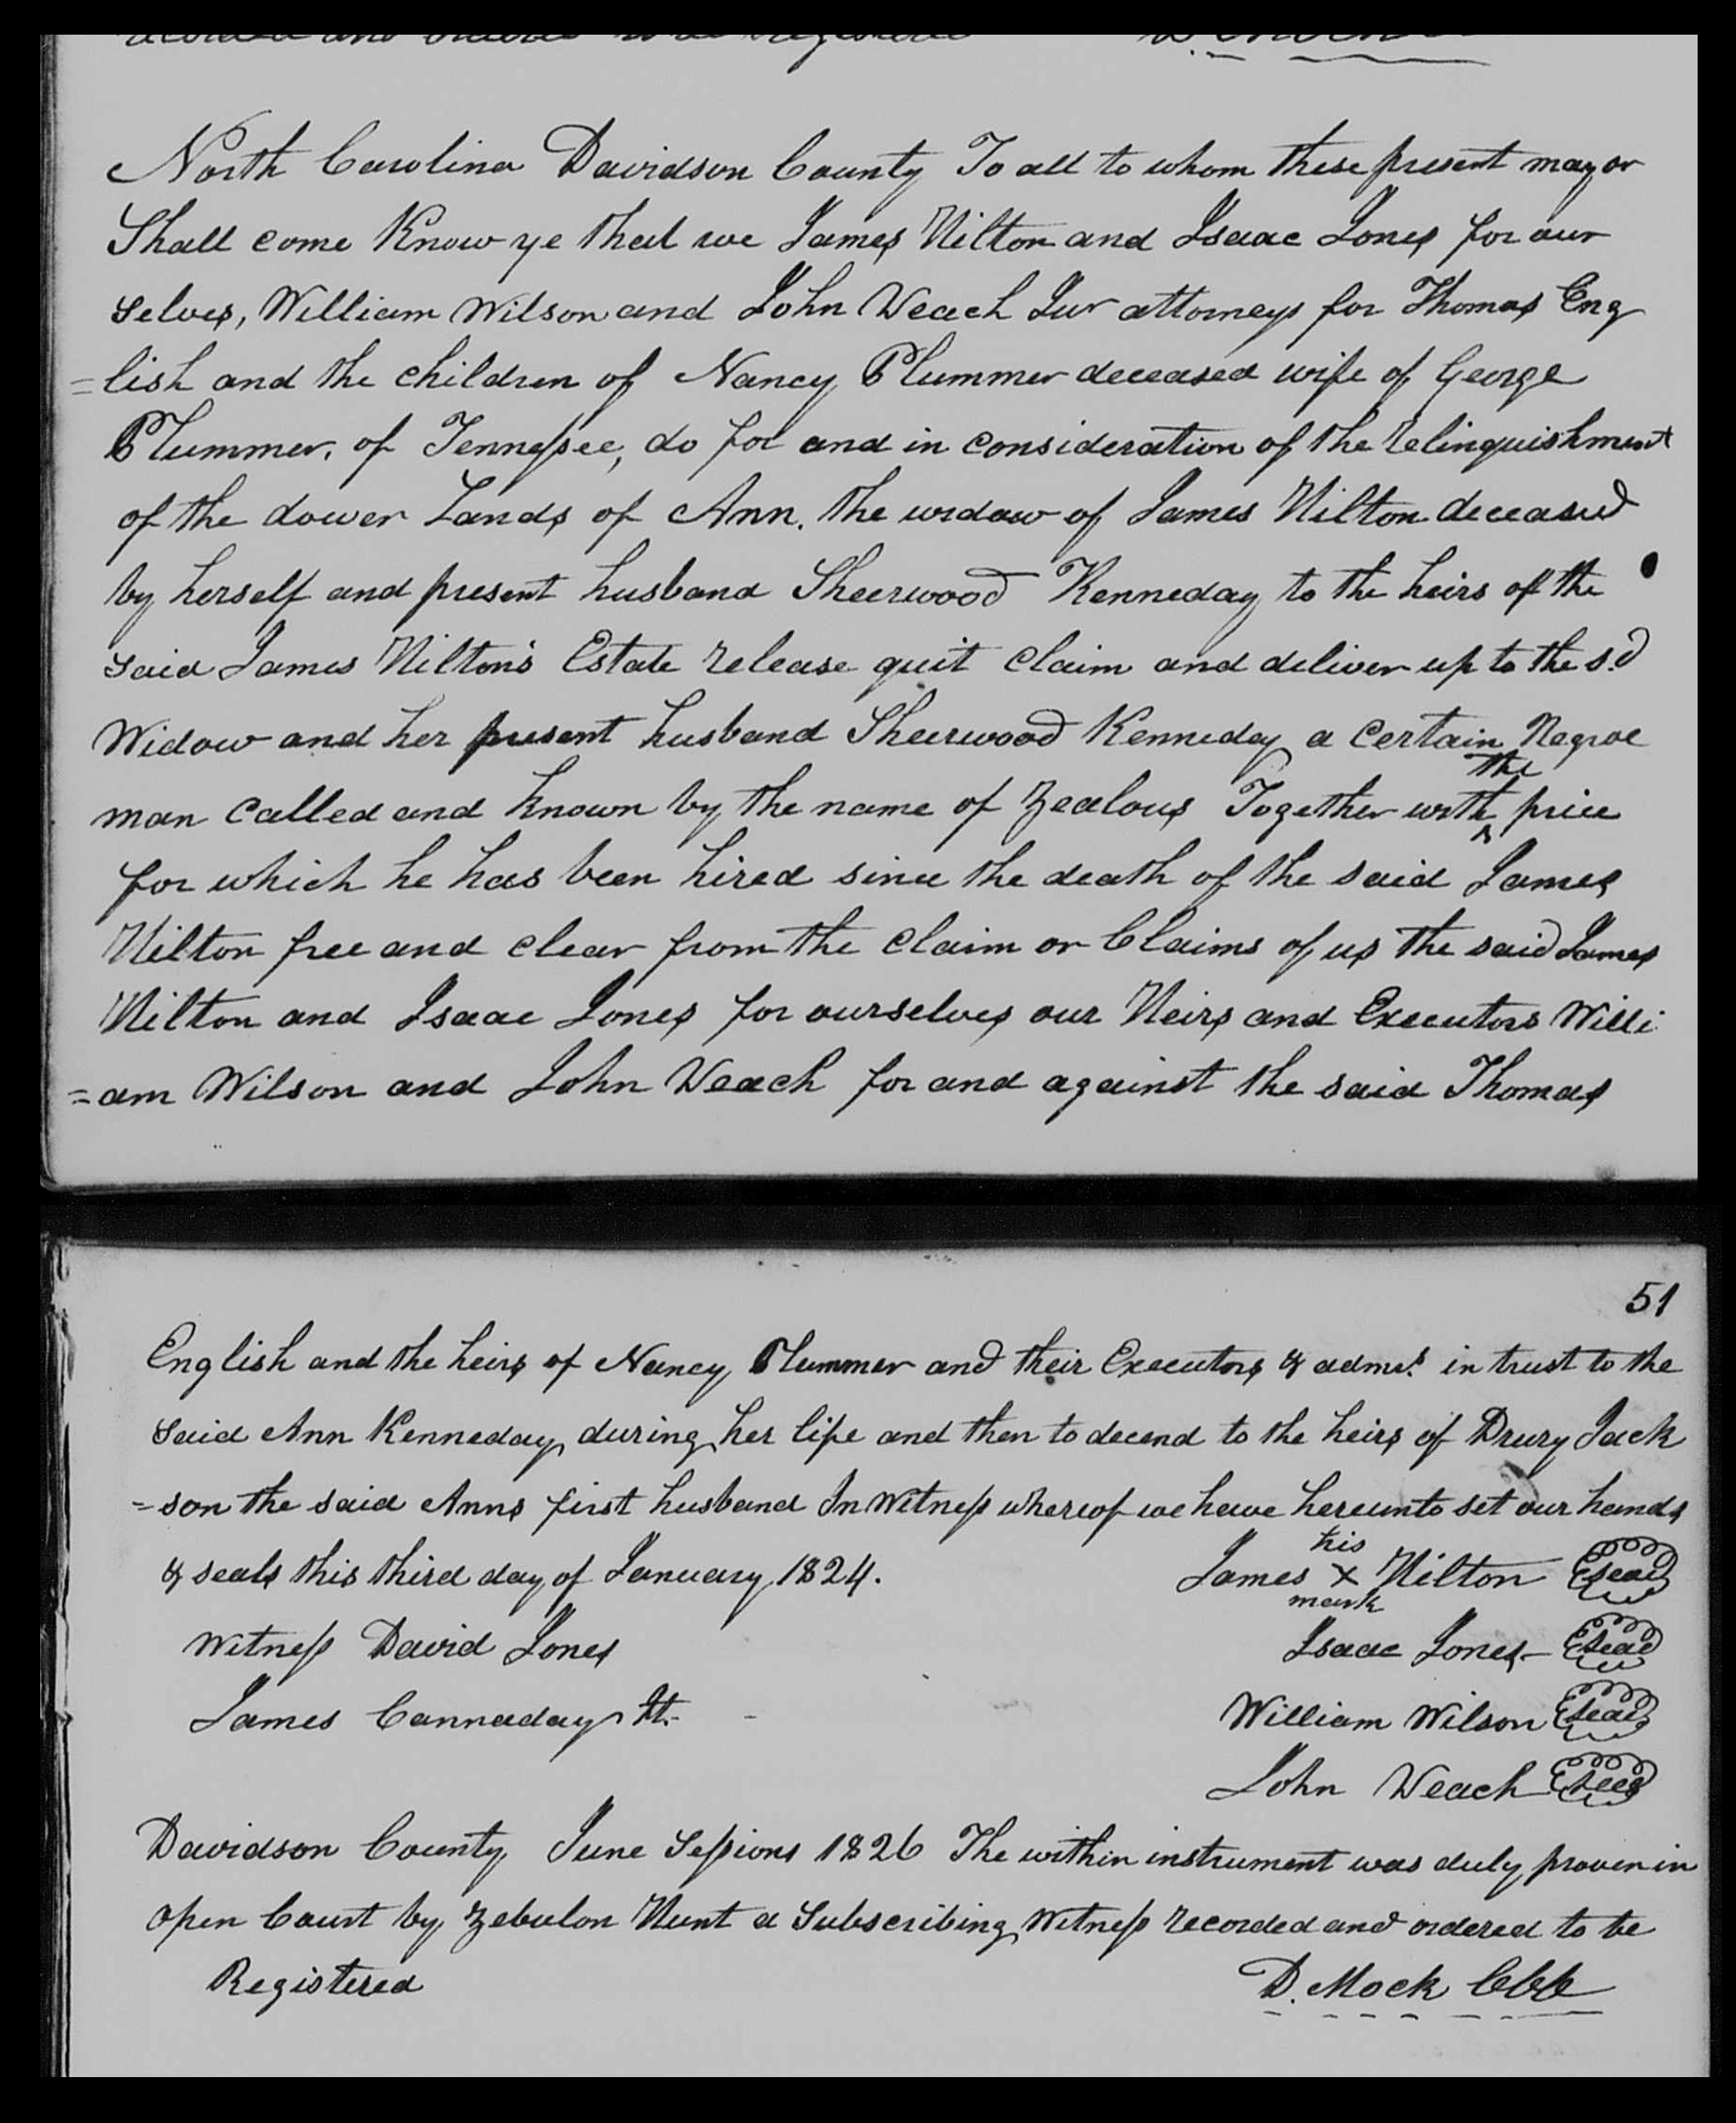 North Carolina Davidson County To all to whom these present may or
Shall come Know ye that we James Hilton and Isaac Jones for our
selves, William Wilson and John Veach Jur attorneys for Thomas Eng
=lish and the children of Nancy Plummer deceased wife of George
Plummer, of Tennessee, do for and in consideration of the relinquishment
of the dower Lands of Ann. the widow of James Hilton deceased
by herself and present husband Sheerwood Kenneday to the heirs of the
said James Hilton's Estate release quit claim and deliver up to the s.d
Widow and her present husband Sheerwood Kenneday a certain Negroe
man called and known by the name of Zealous Together with the price
for which he has been hired since the death of the said James
Hilton free and clear from the claim or Claims of us the said James
Hilton and Isaac Jones for ourselves our Heirs and Executors Willi
=am Wilson and John Veach for and against the said Thomas
51
English and the heirs of Nancy Plummer and their Executors & adms. in trust to the
said Ann Kenneday during her life and then to decend to the heirs of Drury Jack
=son the said Anns first husband In Witness whereof we have hereunto set our hands
& seals this third day of January 1824. James his X mark Hilton seal
Witness David Jones Isaac Jones - seal
James Cannaday Jt. - William Wilson seal
John Veach seal
Davidson County June Sessions 1826 The within instrument was duly proven in
open Court by Zebulon Hunt a Subscribing Witness recorded and ordered to be
Registered D. Mock CCC